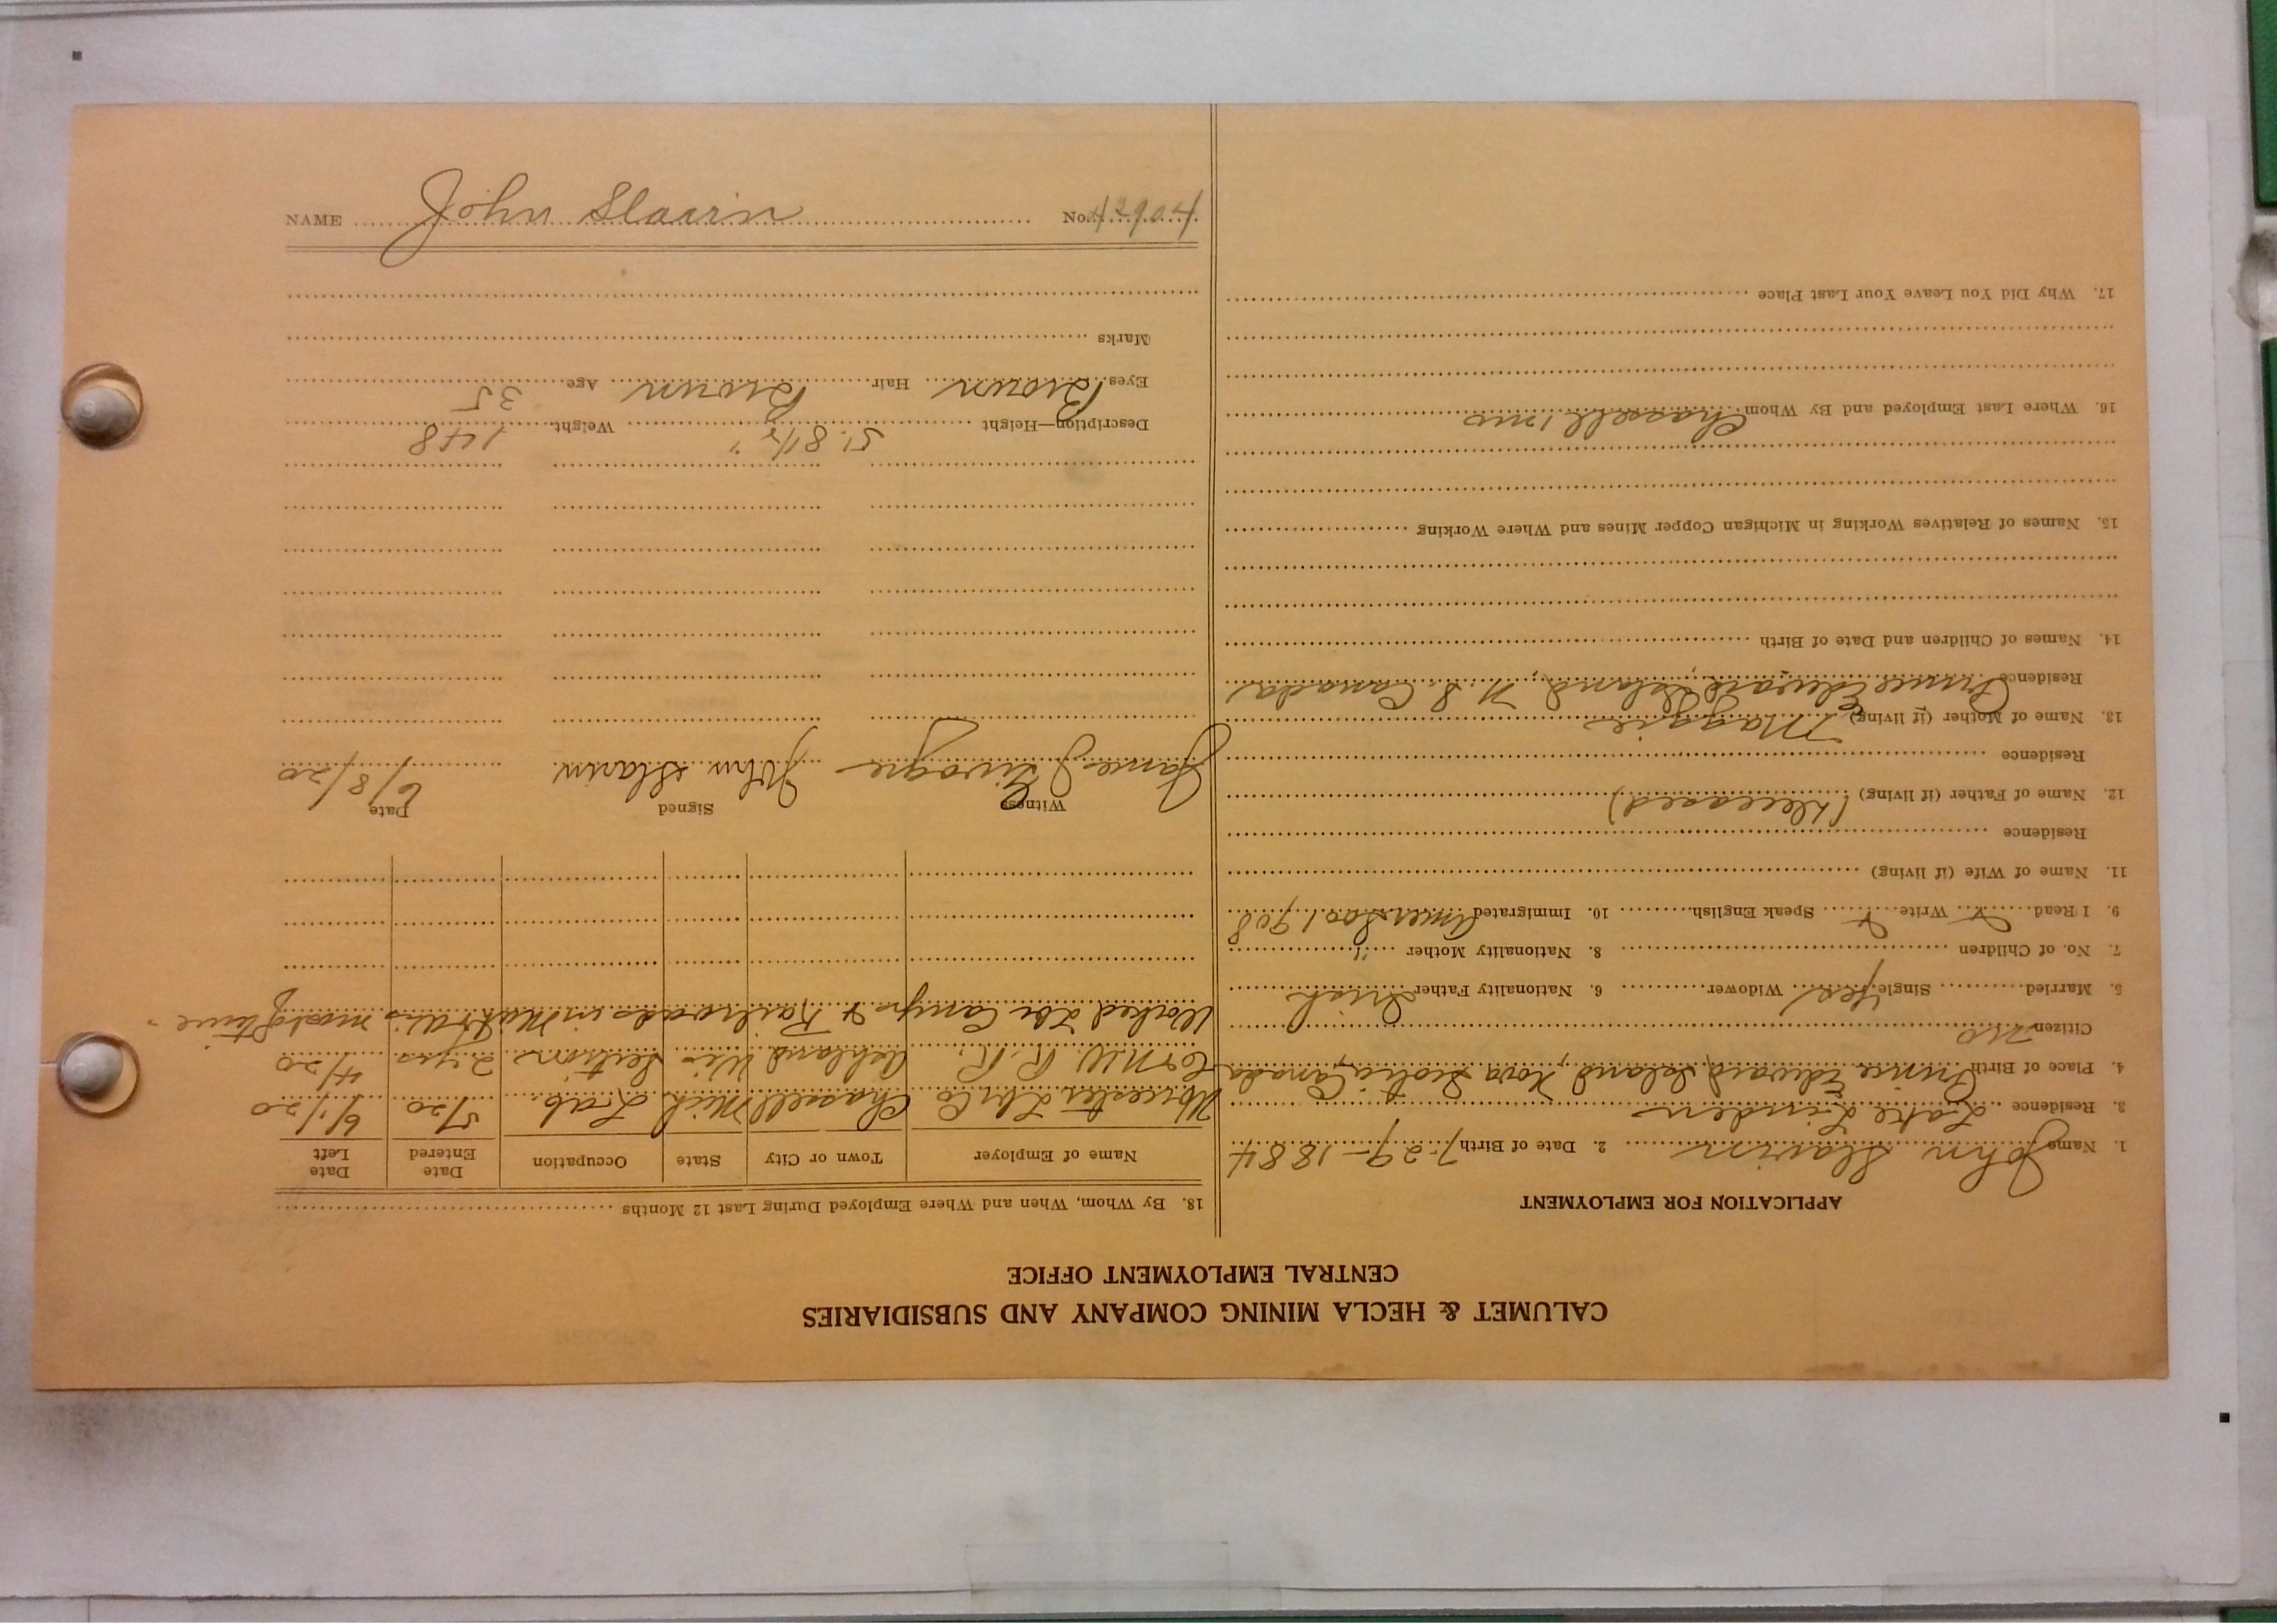 NAME John Slavin No. 42904
CALUMET & HECLA MINING COMPANY AND SUBSIDIARIES
CENTRAL EMPLOYMENT OFFICE
APPLICATION FOR EMPLOYMENT
1. Name John Slavin 2. Date of Birth 7-29-1884
3. Residence Lake Linden
4. Place of Birth Prince Edward Island, Nova Scotia, Canada
Citizen no
5. Married Single Yes Widower 6. Nationality Father Irish
7. No. of Children 8. Nationality Mother "
9. I Read Write Speak English 10. Immigrated Amer. Soo 1908
11. Name of Wife (if living)
Residence
12. Name of Father (if living) (deceased)
Residence
13. Name of Mother (if living) Maggie
Residence Prince Edward Island, N. S. Canada
14. Names of Children and Date of Birth
15. Names of Relatives Working in Michigan Copper Mines and Where Working
16. Where Last Employed and By Whom Chasell
17. Why Did You Leave Your Last Place
18. By Whom, When and Where Employed During Last 12 Months
Name of Employer Town or City State Occupation Date Entered Date Left
Worcester Lbr Co Chasell Mich Lab 5/20 6/1/20
C & N.W. R. R. Ashland Wis Section 2 yrs 4/20
Worked Lbr Camps & Railroads in most of time
Witness Signed Date
James John Slavin 6/8/20
Description—Height 5' 8 1/2" Weight 148
Eyes Brown Hair Brown Age 35
Marks